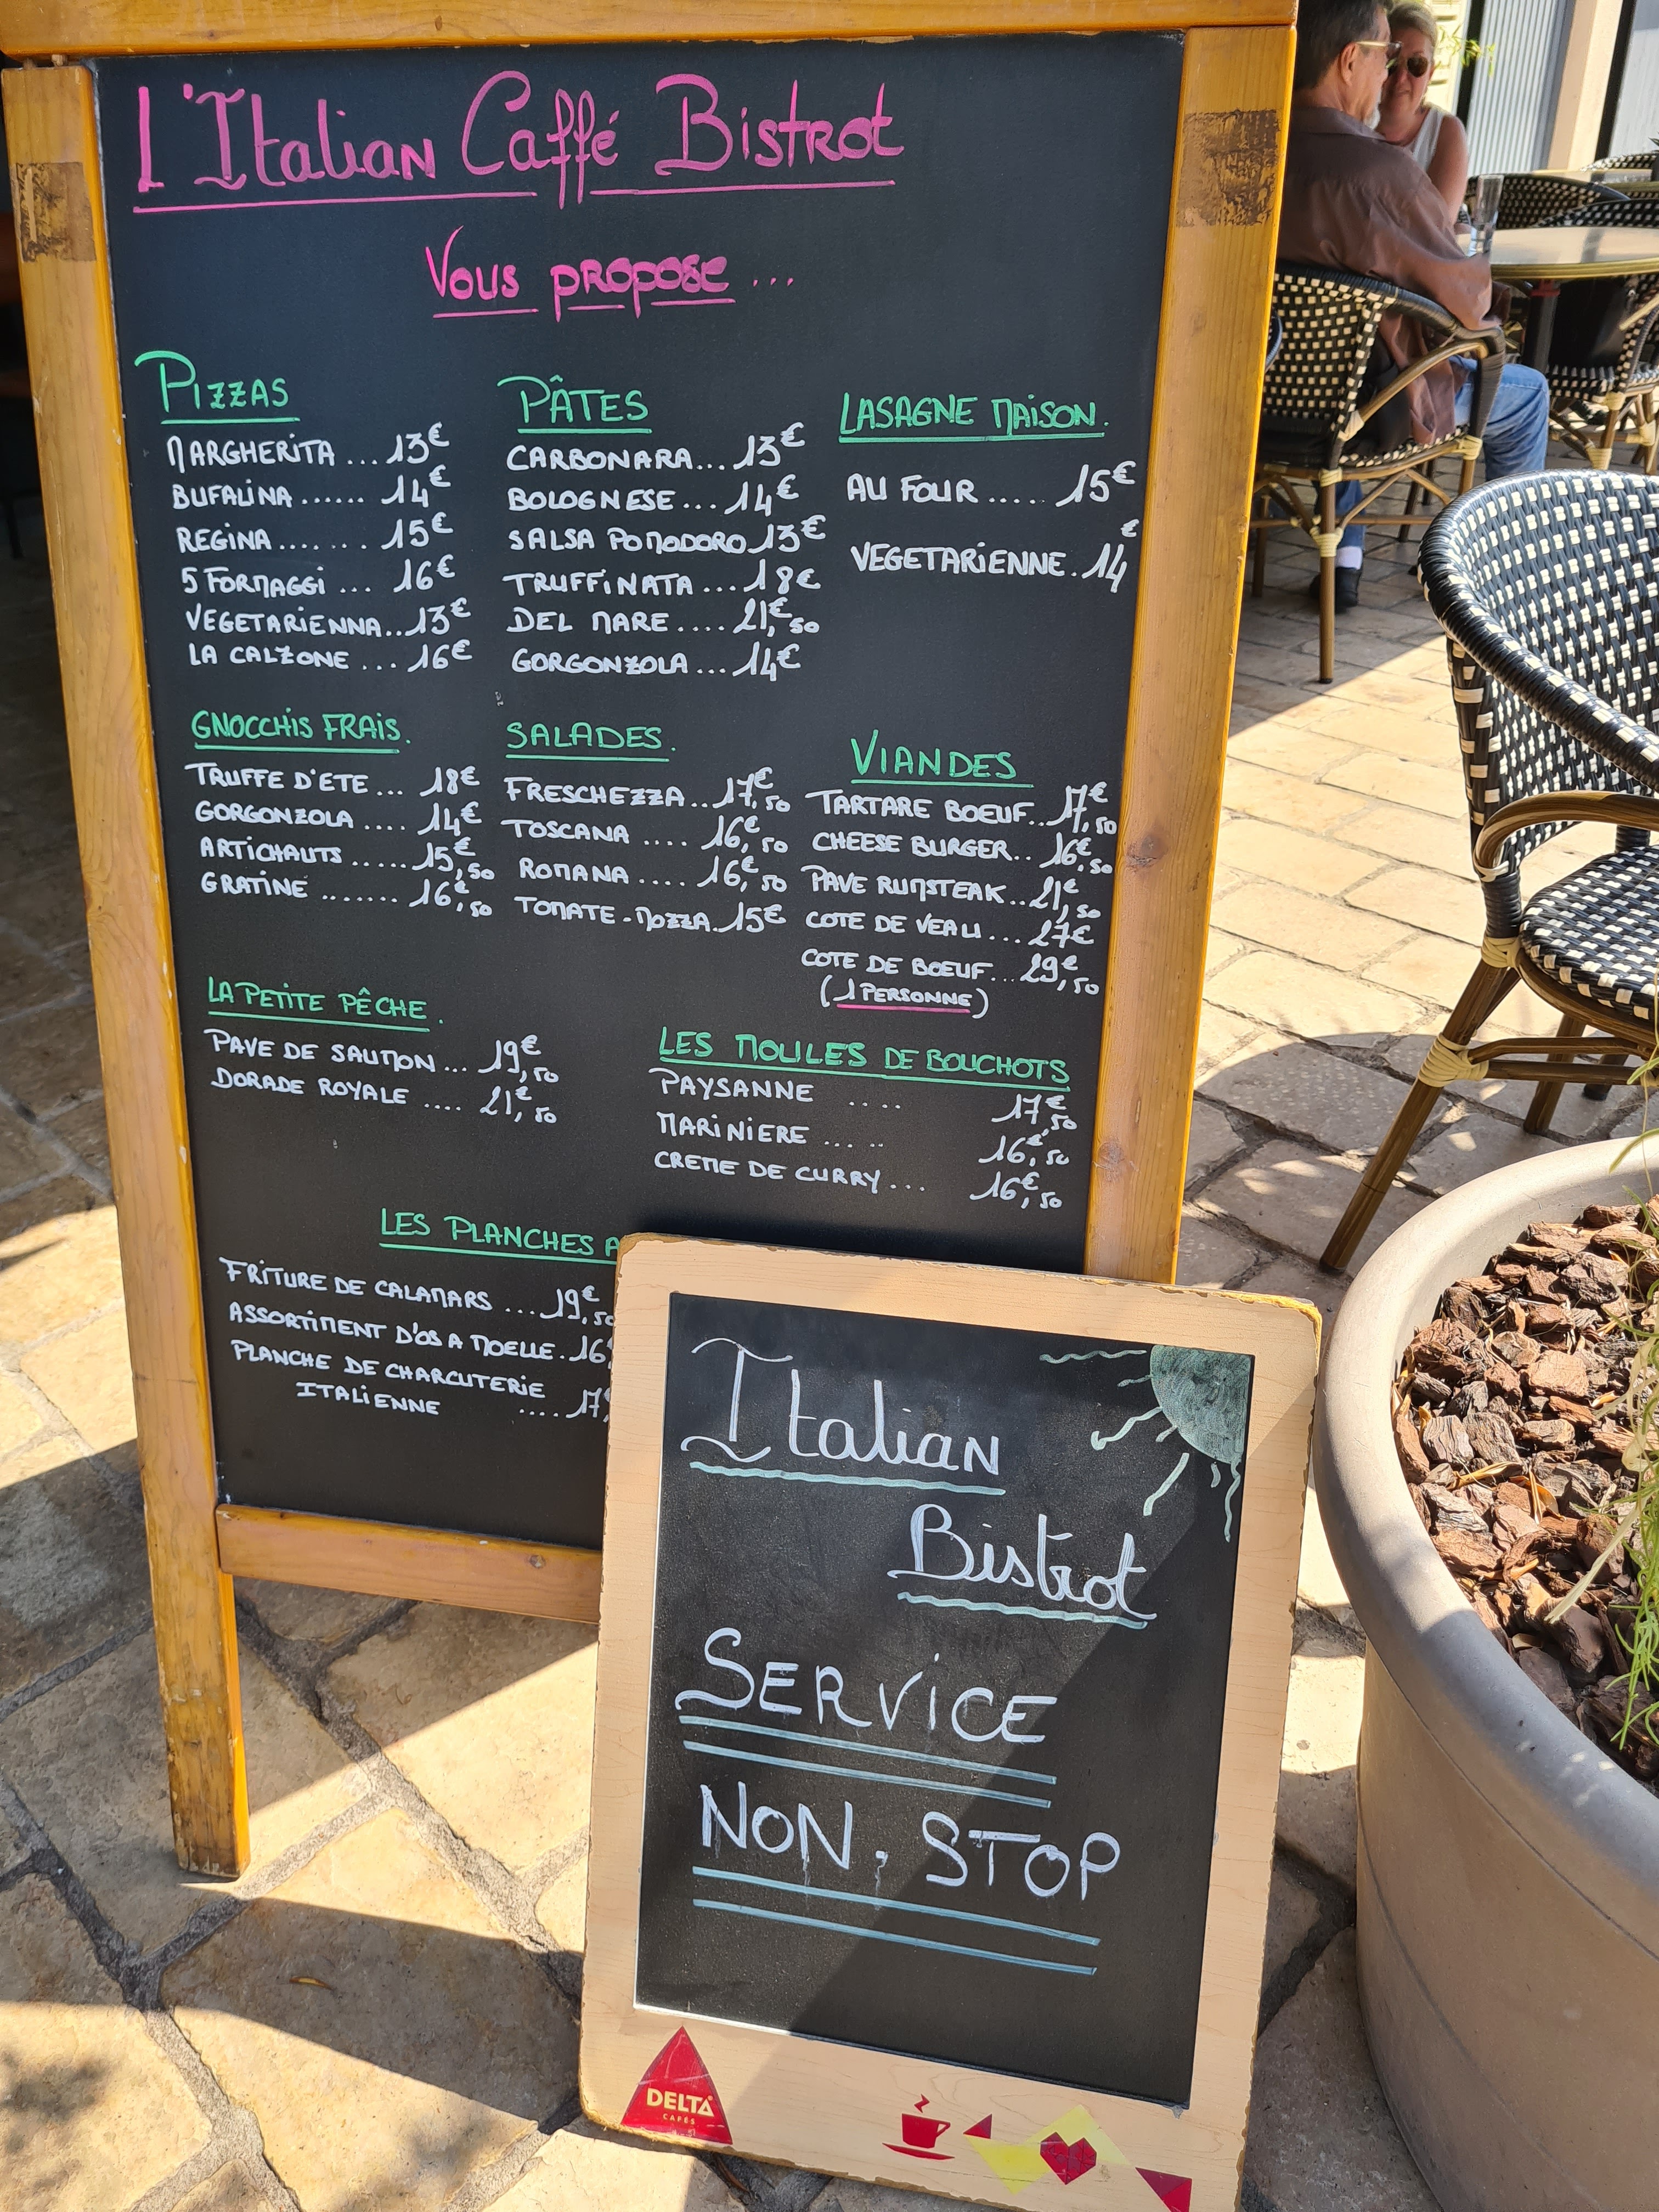 L'Italian Caffé Bistrot
Vous propose ...
Pizzas
Margherita ... 13€
Bufalina ...... 14€
Regina ....... 15€
5 Formaggi ... 16€
Vegetarienna .. 13€
La Calzone ... 16€
Pâtes
Carbonara ... 13€
Bolognese ... 14€
Salsa Pomodoro 13€
Truffinata ... 18€
Del Mare .... 21€,50
Gorgonzola ... 14€
Lasagne Maison.
Au Four ..... 15€
Vegetarienne . 14€
Gnocchis Frais.
Truffe d'ete ... 18€
Gorgonzola .... 14€
Artichauts ..... 15€,50
Gratine ....... 16€,50
Salades.
Freschezza .. 17€,50
Toscana .... 16€,50
Romana .... 16€,50
Tomate-Mozza. 15€
Viandes
Tartare Boeuf .. 17€,50
Cheese Burger .. 16€,50
Pave Rumsteak .. 21€,50
Cote de Veau ... 27€
Cote de Boeuf ... 29€,50
(1 Personne)
La Petite Pêche.
Pave de Saumon ... 19€,50
Dorade Royale .... 21€,50
Les Moules de Bouchots
Paysanne .... 17€,50
Mariniere ..... 16€,50
Creme de Curry ... 16€,50
Les Planches
Friture de Calamars .... 19€,50
Assortiment d'os a Moelle . 16
Planche de Charcuterie
Italienne .... 17€
Italian
Bistrot
Service
Non, Stop
DELTA
CAFÉS